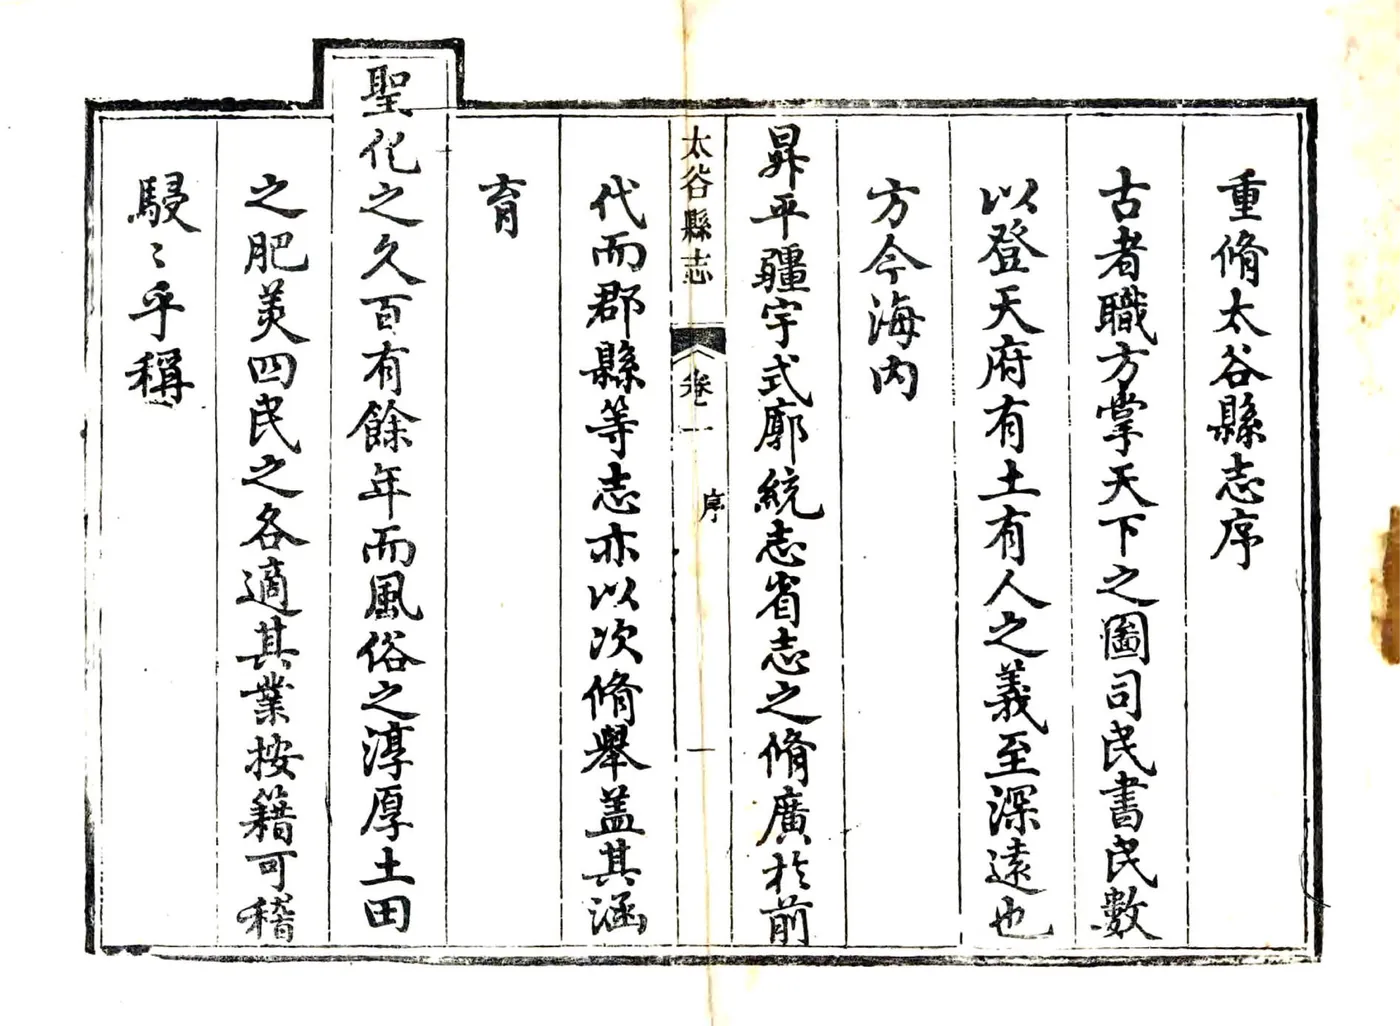 重脩太谷縣志序
古者職方掌天下之圖司民書民數
以登天府有土有人之義至深遠也
方今海内
昇平疆宇式廓統志省志之脩廣於前
太谷縣志
卷一
序
一
代而郡縣等志亦以次脩舉盖其涵
育
聖化之久百有餘年而風俗之淳厚土田
之肥美四民之各適其業按籍可稽
駸〻乎稱